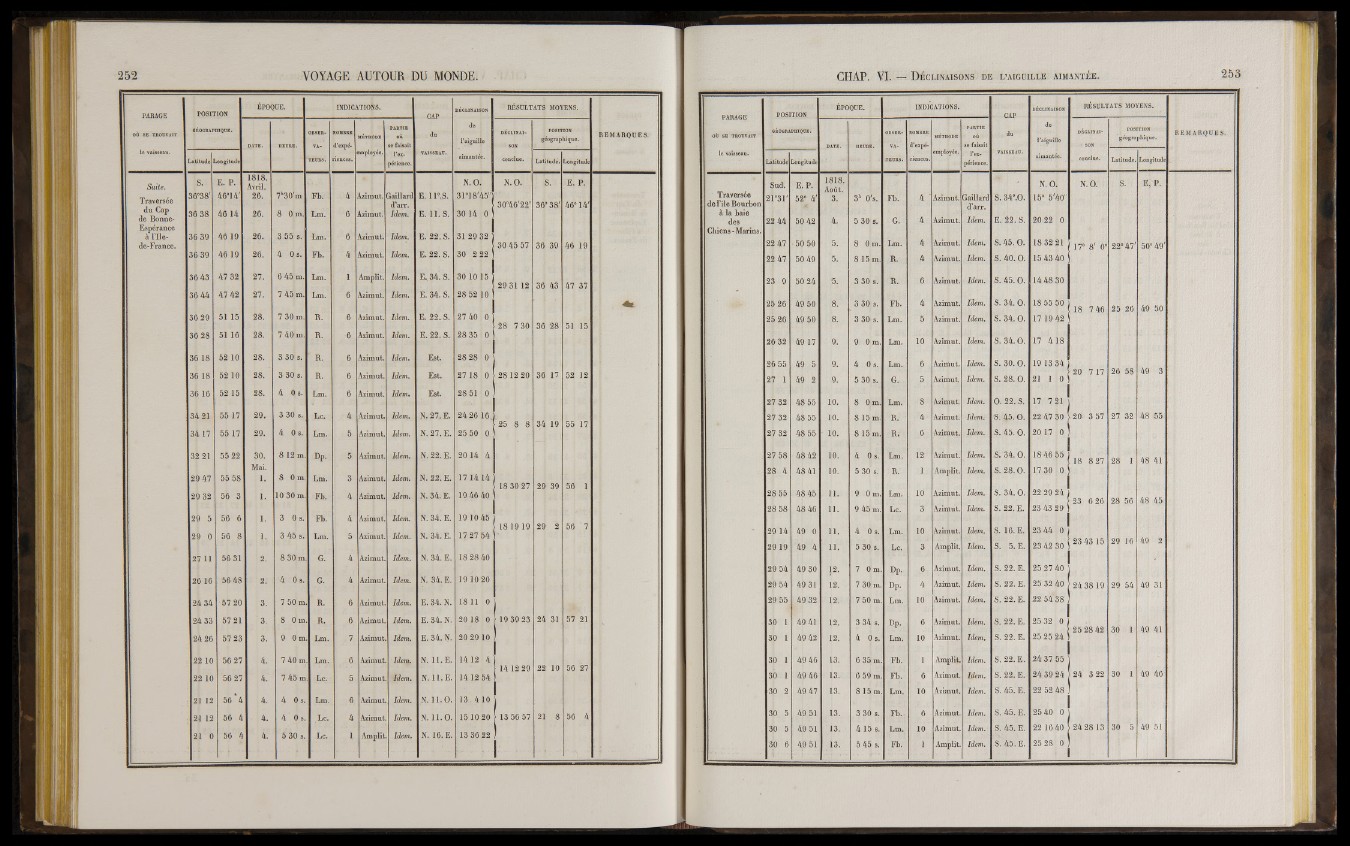 252 VOYAGE AUTOUR DU MONDE.
PARAGE OÙ SE TROUVAIT le vaisseau.
POSITION GÉOGRAPHIQUE. Latitude Longitude
ÉPOQUE. DATE. HEURE.
INDICATIONS. OBSER-VA-TEURS. NOMBRE d'expé-riences. MÉTHODE employée. PARTIE où se faisait l'ex-périence.
CAP du VAISSEAU.
DÉCLINAISON de l'aiguille aimantée.
RÉSULTATS MOYENS. DÉCLINAI-SON conclue. POSITION géographique. Latitude. Longitude
REMARQUES.
Suite.
Traversée
du Cap
de Bonne-
Espérance
à l'Ile-
de-France.
S. E. P. 1818. Avril. N. O. N. O. S. E. P.
36°38' 46°14' 26. 7h30'm. Fb. 4 Azimut. Gaillard d'arr. E. 11°.S. 31°18'45" 30°46'22" 36°38' 46°14'
36 38 46 14 26. 8 0 m. Lm. 6 Azimut. Idem. E. 11. S. 30 14 0
36 39 46 19 26. 3 55 s. Lm. 6 Azimut. Idem. E. 22. S. 31 29 32 30 45 57 36 39 46 19
36 39 46 19 26. 4 0 s. Fb. 4 Azimut. Idem. E. 22. S. 30 2 22
36 43 47 32 27. 6 45 m. Lm. 1 Amplit. Idem. E. 34. S. 30 10 15 29 31 12 36 43 47 37
36 44 47 42 27. 7 45 m. Lm. 6 Azimut. Idem. E. 34. S. 28 52 10
36 29 51 15 28. 7 30 m. R. 6 Azimut. Idem. E. 22. S. 27 40 0 28 7 30 36 28 51 15
36 28 51 16 28. 7 40 m. R. 6 Azimut. Idem. E. 22. S. 28 35 0
36 18 52 10 28. 3 30 s. R. 6 Azimut. Idem. Est. 28 28 0
36 18 52 10 28. 3 30 s. R. 6 Azimut. Idem. Est. 27 18 0 28 12 20 36 17 52 12
36 16 52 15 28. 4 0 s. Lm. 6 Azimut. Idem. Est. 28 51 0
34 21 55 17 29. 3 30 s. Lc. 4 Azimut. Idem. N. 27. E. 24 26 16 25 8 8 34 19 55 17
34 17 55 17 29. 4 0 s. Lm. 5 Azimut. Idem. N. 27. E. 25 50 0
32 21 55 22 30. 8 12 m. Dp. 5 Azimut. Idem. N. 22. E. 20 14 4
Mai.
29 47 55 58 1. 8 0 m. Lm. 3 Azimut. Idem. N. 22. E. 17 14 14 18 30 27 29 39 56 1
29 32 56 3 1. 10 30 m. Fb. 4 Azimut. Idem. N. 34. E. 19 46 40
29 5 56 6 1. 3 0 s. Fb. 4 Azimut. Idem. N. 34. E. 19 10 45 18 19 19 29 2 56 7
29 0 56 8 1. 3 45 s. Lm. 5 Azimut. Idem. N. 34. E. 17 27 54
27 11 56 51 2. 8 30 m. G. 4 Azimut. Idem. N. 34. E. 18 28 40
26 16 56 48 2. 4 0 s. G. 4 Azimut. Idem. N. 34. E. 19 10 20
24 34 57 20 3. 7 50 m. R. 6 Azimut. Idem. E. 34. N. 18 11 0
24 33 57 21 3. 8 0 m. R. 6 Azimut. Idem. E. 34. N. 20 18 0 19 39 23 24 31 57 21
24 26 57 23 3. 9 0 m. Lm. 7 Azimut. Idem. E. 34. N. 20 29 10
22 10 56 27 4. 7 40 m. Lm. 6 Azimut. Idem. N. 11. E. 14 12 4 14 12 29 22 10 56 27
22 10 56 27 4. 7 45 m. Lc. 5 Azimut. Idem. N. 11. E. 14 12 54
21 12 56 4 4. 4 0 s. Lm. 6 Azimut. Idem. N. 11. O. 13 4 10
21 12 56 4 4. 4 0 s. Lc. 4 Azimut. Idem. N. 11. O. 15 10 20 13 56 57 21 8 56 4
21 0 56 4 4. 5 30 s. Lc. 1 Amplit. Idem. N. 16. E. 13 36 22
CHAP. VI. — DÉCLINAISONS DE L'AIGUILLE AIMANTÉE. 253
PARAGE OÙ SE TROUVAIT le vaisseau.
POSITION GÉOGRAPHIQUE. Latitude Longitude
ÉPOQUE. DATE. HEURE.
INDICATIONS. OBSER-VA-TEURS. NOMBRE d'expé-riences. MÉTHODE employée. PARTIE où se faisait l'ex-périence.
CAP du VAISSEAU.
DÉCLINAISON de l'aiguille aimantée.
RÉSULTATS MOYENS. DÉCLINAI-SON conclue. POSITION géographique. Latitude. Longitude
REMARQUES.
Traversée
de l'île Bourbon
à la baie
des
Chiens-Marins.
Sud. E. P. 1818. Août. N. O. N. O. S. E. P.
21°31' 52° 4' 3. 5h 0's. Fb. 4 Azimut. Gaillard d'arr. S. 34°.O. 15° 5'40"
22 44 50 42 4. 5 30 s. G. 4 Azimut. Idem. E. 22. S. 20 22 0
22 47 50 50 5. 8 0 m. Lm. 4 Azimut. Idem. S. 45. O. 18 32 21 17° 8' 0" 22°47' 50°49'
22 47 50 49 5. 8 15 m. R. 4 Azimut. Idem. S. 40. O. 15 43 40
23 9 50 24 5. 3 30 s. R. 6 Azimut. Idem. S. 45. O. 14 48 30
25 26 49 50 8. 3 30 s. Fb. 4 Azimut. Idem. S. 34. O. 18 55 50 18 7 46 25 26 49 50
25 26 49 50 8. 3 30 s. Lm. 5 Azimut. Idem. S. 34. O. 17 19 42
26 32 49 17 9. 9 0 m. Lm. 10 Azimut. Idem. S. 34. O. 17 4 18
26 55 49 5 9. 4 0 s. Lm. 6 Azimut. Idem. S. 30. O. 19 13 34 20 7 17 26 58 49 3
27 1 49 2 9. 5 30 s. G. 5 Azimut. Idem. S. 28. O. 21 1 0
27 32 48 55 10. 8 0 m. Lm. 8 Azimut. Idem. O. 22. S. 17 7 21
27 32 48 55 10. 8 15 m. R. 4 Azimut. Idem. S. 45. O. 22 47 30 20 3 57 27 32 48 55
27 32 48 55 10. 8 15 m. R. 6 Azimut. Idem. S. 45. O. 20 17 0
27 58 48 42 10. 4 0 s. Lm. 12 Azimut. Idem. S. 34. O. 18 46 55 18 8 27 28 1 48 41
28 4 48 41 10. 5 30 s. R. 1 Amplit. Idem. S. 28. O. 17 30 0
28 55 48 45 11. 9 0 m. Lm. 10 Azimut. Idem. S. 34. O. 22 29 24 23 6 26 28 56 48 45
28 58 48 46 11. 9 45 m. Lc. 3 Azimut. Idem. S. 22. E. 23 43 29
29 14 49 0 11. 4 0 s. Lm. 10 Azimut. Idem. S. 16. E. 23 44 0 23 43 15 29 16 49 2
29 19 49 4 11. 5 30 s. Lc. 3 Amplit. Idem. S. 5. E. 23 42 30
29 54 49 30 12. 7 0 m. Dp. 6 Azimut. Idem. S. 22. E. 25 27 40
29 54 49 31 12. 7 30 m. Dp. 4 Azimut. Idem. S. 22. E. 25 32 40 24 38 19 29 54 49 31
29 55 49 32 12. 7 50 m. Lm. 10 Azimut. Idem. S. 22. E. 22 54 38
30 1 49 41 12. 3 34 s. Dp. 6 Azimut. Idem. S. 22. E. 25 32 0 25 28 42 30 1 49 41
30 1 49 42 12. 4 0 s. Lm. 10 Azimut. Idem. S. 22. E. 25 25 24
30 1 49 46 13. 6 35 m. Fb. 1 Amplit. Idem. S. 22. E. 24 37 55
30 1 49 46 13. 6 59 m. Fb. 6 Azimut. Idem. S. 22. E. 24 39 24 24 3 22 30 1 49 46
30 2 49 47 13. 8 15 m. Lm. 10 Azimut. Idem. S. 45. E. 22 52 48
30 5 49 51 13. 3 30 s. Fb. 6 Azimut. Idem. S. 45. E. 25 40 0
30 5 49 51 13. 4 15 s. Lm. 10 Azimut. Idem. S. 45. E. 22 16 40 24 28 13 30 5 49 51
30 6 49 51 13. 5 45 s. Fb. 1 Amplit. Idem. S. 45. E. 25 28 0